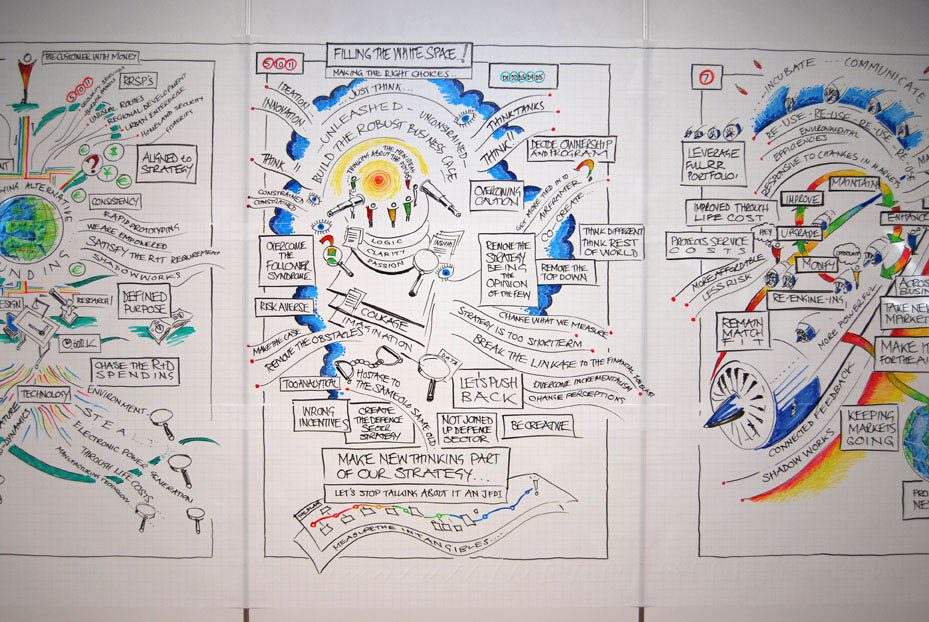 THE CUSTOMER WITH MONEY
5 10 11
RRSP's
UNUSUAL ROUTES
REGIONAL DEVELOPMENT
URBAN ENTERPRISE
HOMELAND SECURITY
ALIGNED to
STRATEGY
ALTERNATIVE
CONSISTENCY
RAPID PROTOTYPING
WE ARE EMPOWERED
SATISFY THE R+T REQUIREMENT
SHADOW WORKS
NDING
DESIGN
RESEARCH
DEFINED
PURPOSE
CHASE THE R+D
SPENDING
TECHNOLOGY
ENVIRONMENT
STEA...
ELECTRONIC POWER GENERATION
THROUGH LIFE COSTS
MANUFACTURING TECHNOLOGY
5 10 11
FILLING THE WHITE SPACE..!
MAKING THE RIGHT CHOICES..
IDEATION
INNOVATION
THINK!!
CONSTRAINED
CONSTRAINED
JUST THINK...
UNLEASHED - UNCONSTRAINED!
BUILD THE ROBUST BUSINESS CASE
THINKING ABOUT THE
THINKTANKS
THINK!!
DECIDE OWNERSHIP
AND PROGRAM
OVERCOMING
CAUTION
GET MORE LINED IN TO
AIRFRAMER
CO-CREATE...
LOGIC
CLARITY
PASSION
INSIGHT
OVERCOME
THE
FOLLOWER
SYNDROME
REMOVE THE
STRATEGY
BEING
THE
OPINION
OF THE FEW
THINK DIFFERENT
THINK REST
OF WORLD
REMOVE THE
TOP DOWN
RISK AVERSE
COURAGE
IMAGINATION
MAKE THE CASE
REMOVE THE OBSTACLES
CHANGE WHAT WE MEASURE
STRATEGY IS TOO SHORT TERM
BREAK THE LINKAGE TO THE FINANCIAL
OVERCOME INCREMENTALISM
CHANGE PERCEPTIONS
DATA
TOO ANALYTICAL
HOSTAGE TO
THE SAME OLD SAME OLD
LET'S PUSH
BACK
WRONG
INCENTIVES
CREATE
THE DEFENCE
SECTOR
STRATEGY
NOT JOINED
UP DEFENCE
SECTOR
BE CREATIVE
MAKE NEW THINKING PART
OF OUR STRATEGY...
LET'S STOP TALKING ABOUT IT AN JFDI
THE PLAN
MEASURE THE INTANGIBLES....
7
INCUBATE... COMMUNICATE
RE-USE - RE-USE - RE-USE - RE-
ENVIRONMENTAL
EFFICIENCIES
RESPONSIVE TO CHANGES IN MARKETS
LEVERAGE
FULL RR
PORTFOLIO
MAINTAIN
IMPROVE
IMPROVED THROUGH
LIFE COST
ENHANCE
HEY
UPGRADE
PROTECTS SERVICE
COSTS
MODIFY
MORE AFFORDABLE
LESS RISK
RE-ENGINE-ING
ACROSS
BUSIN
REMAIN
MATCH
FIT
MORE POWERFUL
TAKE NEW
MARKET
MAKE IT
FOR THE A
CONNECTED FEEDBACK
KEEPING
MARKETS
GOING
SHADOW WORKS
PRO
NE